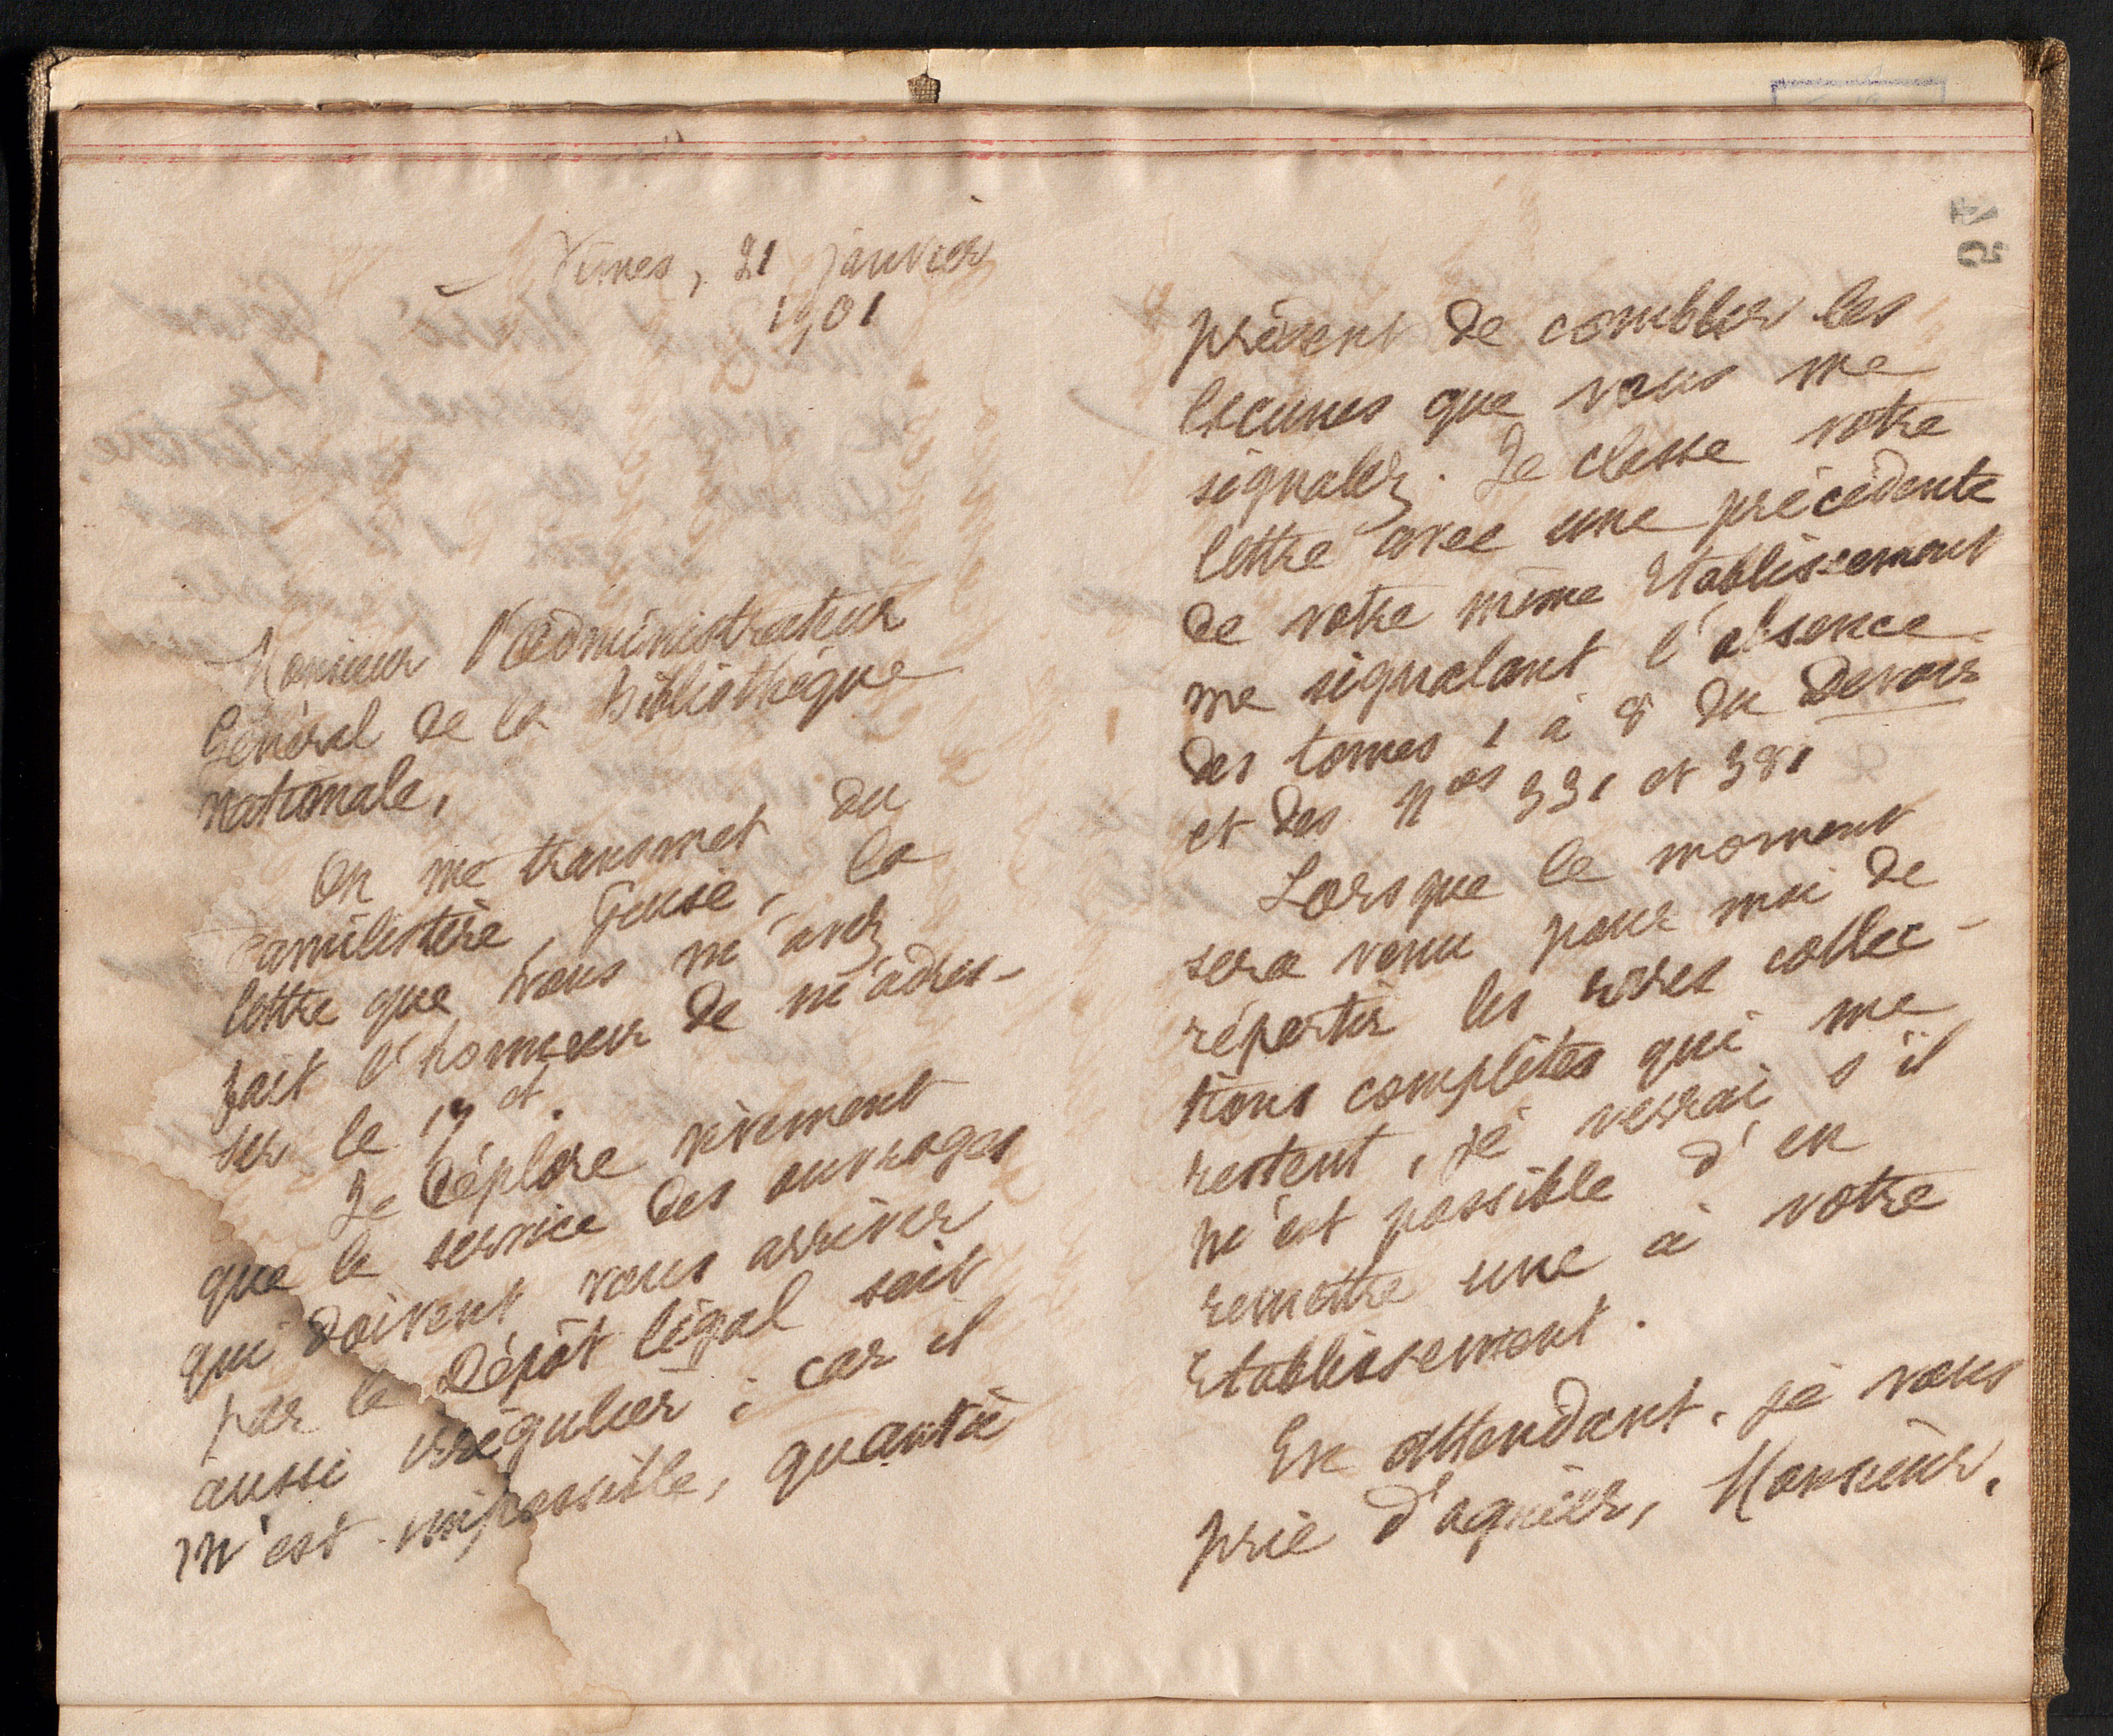 Nimes, 21 janvier
1901
Monsieur l'administrateur
Général de la bibliothèque
nationale,
On me transmet du
Familistère, Guise, la
lettre que vous m'avez
fait l'honneur de m'adres-
ser le 17 ct.
Je déplore vivement
que le service des ouvrages
qui doivent vous arriver
par le Dépôt légal soit
aussi irrégulier ; car il
m'est impossible, quant à
présent de combler les
lacunes que vous me
signalez. Je classe votre
lettre avec une précédente
de votre même Etablissement
me signalant l'absence
des tomes 1 à 8 du Devoir
et des nos 331 et 381
Lorsque le moment
sera venu pour moi de
répartir les rares collec-
tions complètes qui me
restent, je verrai s'il
m'est possible d'en
remettre une à votre
Etablissement.
En attendant, je vous
prie d'agréer, Monsieur,